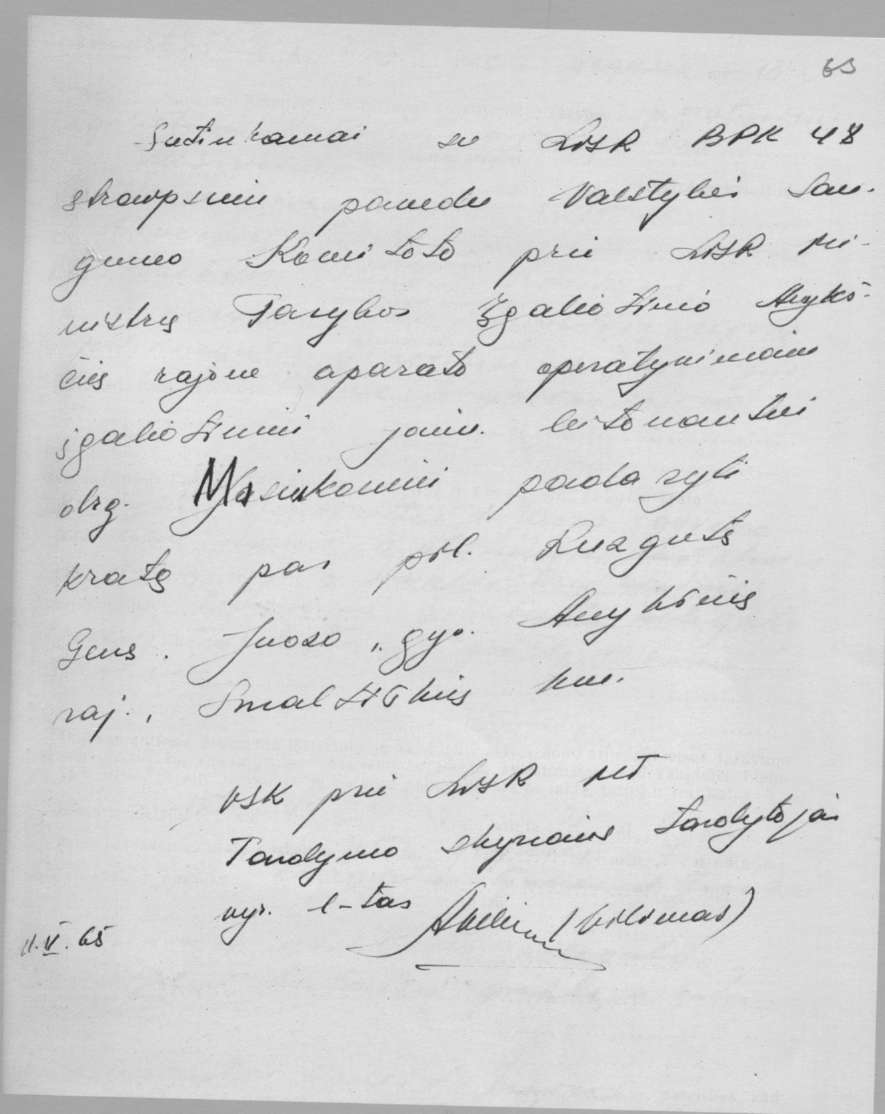 63
Sutinkamai su LTSR BPK 48
straipsniu pavedu Valstybės Sau-
gumo Komiteto prie LTSR Mi-
nistrų Tarybos Įgaliotinio Anykš-
čių rajone aparato operatyviniam
įgaliotiniui jaun. leitenantui
drg. padaryti
kratą pas pil. Luzgutę
Juozo, gyv. Anykščių
raj., km.
VSK prie LTSR MT
Tardymo skyriaus tardytojas
vyr. l-tas (Vilimas)
11.V.65